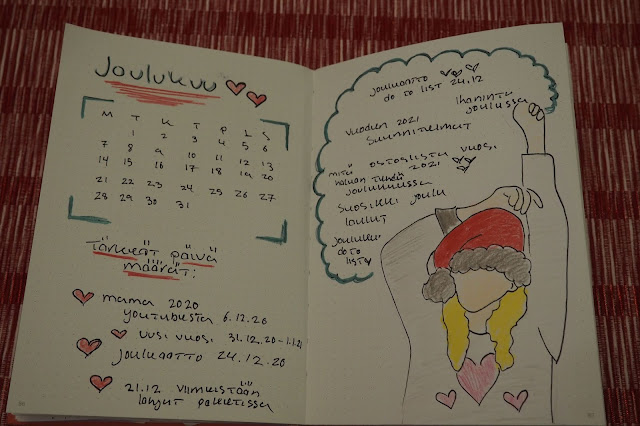 Joulukuu
M T K T P L S
1 2 3 4 5 6
7 8 9 10 11 12 13
14 15 16 17 18 19 20
21 22 23 24 25 26 27
28 29 30 31
Tärkeät päivä
määrät:
mama 2020
youtubesta 6.12.20
uusi vuosi 31.12.20-1.1.21
jouluaatto 24.12.20
21.12 viimeistään
lahjat paketissa
jouluaatto
do to list 24.12
ihaninta
joulussa
vuoden 2021
suunnitelmat
ostoslista vuosi
2021
mitä
haluan tehdä
joulukuussa
suosikki joulu
laulut
do to
lista